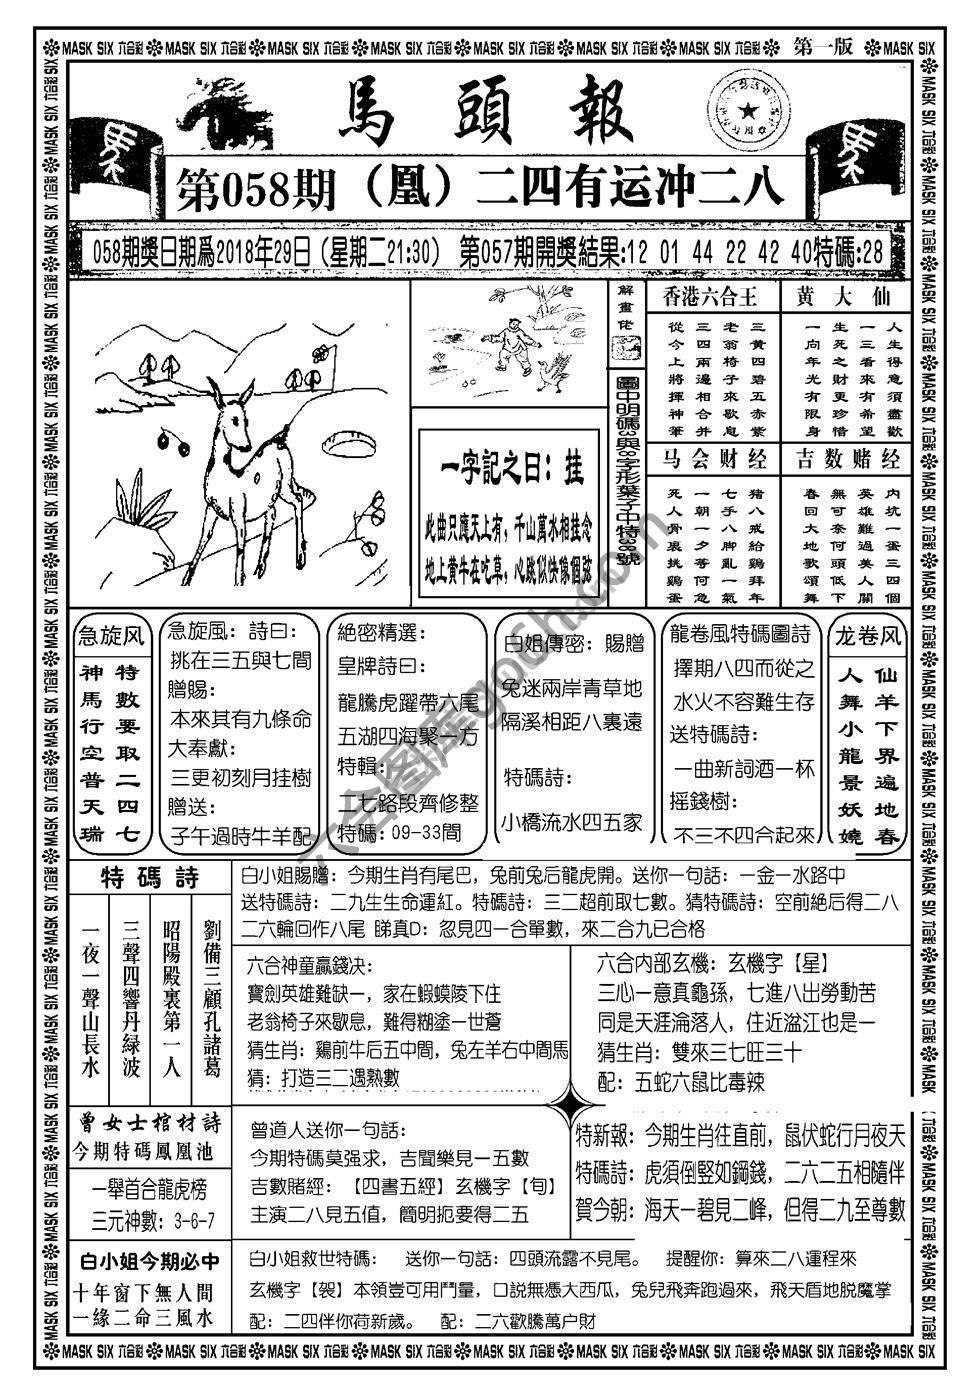 MASK SIX 六合彩 MASK SIX 六合彩 MASK SIX 六合彩 MASK SIX 六合彩 MASK SIX 六合彩 MASK SIX 六合彩 MASK SIX 六合彩 第一版 MASK SIX
馬頭報
第058期（凰）二四有运冲二八
058期獎日期爲2018年29日（星期二21:30） 第057期開獎結果:12 01 44 22 42 40特碼:28
一字記之曰：挂
此曲只應天上有，千山萬水相挂念
地上黄牛在吃草，心跳似快像個豚
解畫佬
圖中明碼3與8字形葉子中特38號
香港六合王
三黄四碧五赤紫
老翁椅子來歇息
三四兩邊相合并
從今上將揮神筆
黄大仙
人生得意須盡歡
一三看來有希望
生死之財更珍惜
一向年光有限身
马会财经
猪八戒給鷄拜年
七手八脚亂一氣
一朝一夕等何急
死人骨裏挑鷄蛋
吉数赌经
内坑一蛋三四個
英雄難過美人關
無可奈何頭低下
春回大地歌頌舞
急旋风
特數要取二四七
神馬行空普天瑞
急旋風：詩曰：
挑在三五與七間
贈賜：
本來其有九條命
大奉獻：
三更初刻月挂樹
贈送：
子午過時牛羊配
絶密精選：
皇牌詩曰：
龍騰虎躍帶六尾
五湖四海聚一方
特輯：
二七路段齊修整
特碼：09-33間
白姐傳密：賜贈
兔迷兩岸青草地
隔溪相距八裏遠
特碼詩：
小橋流水四五家
龍卷風特碼圖詩
擇期八四而從之
水火不容難生存
送特碼詩：
一曲新詞酒一杯
摇錢樹：
不三不四合起來
龙卷风
仙羊下界遍地春
人舞小龍景妖嬈
特碼詩
劉備三顧孔諸葛
昭陽殿裏第一人
三聲四響丹緑波
一夜一聲山長水
白小姐賜贈：今期生肖有尾巴，兔前兔后龍虎開。送你一句話：一金一水路中
送特碼詩：二九生生命運紅。特碼詩：三二超前取七數。猜特碼詩：空前絶后得二八
二六輪回作八尾 睇真D：忽見四一合單數，來二合九已合格
六合神童赢錢决：
寶劍英雄難缺一，家在蝦蟆陵下住
老翁椅子來歇息，難得糊塗一世蒼
猜生肖：鷄前牛后五中間，兔左羊右中間馬
猜：打造三二遇熟數
六合内部玄機：玄機字【星】
三心一意真龜孫，七進八出勞動苦
同是天涯淪落人，住近湓江也是一
猜生肖：雙來三七旺三十
配：五蛇六鼠比毒辣
曾女士棺材詩
今期特碼鳳凰池
一舉首合龍虎榜
三元神數：3-6-7
曾道人送你一句話：
今期特碼莫强求，吉聞樂見一五數
吉數賭經：【四書五經】玄機字【旬】
主演二八見五值，簡明扼要得二五
特新報：今期生肖往直前，鼠伏蛇行月夜天
特碼詩：虎須倒竪如鋼錢，二六二五相隨伴
賀今朝：海天一碧見二峰，但得二九至尊數
白小姐今期必中
十年窗下無人間
一緣二命三風水
白小姐救世特碼： 送你一句話：四頭流露不見尾。 提醒你：算來二八運程來
玄機字【袈】本領豈可用鬥量，口説無憑大西瓜，兔兒飛奔跑過來，飛天盾地脱魔掌
配：二四伴你荷新歲。 配：二六歡騰萬户財
MASK SIX 六合彩 MASK SIX 六合彩 MASK SIX 六合彩 MASK SIX 六合彩 MASK SIX 六合彩 MASK SIX 六合彩 MASK SIX 六合彩 MASK SIX 六合彩 MASK SIX
六合图库goosh.com